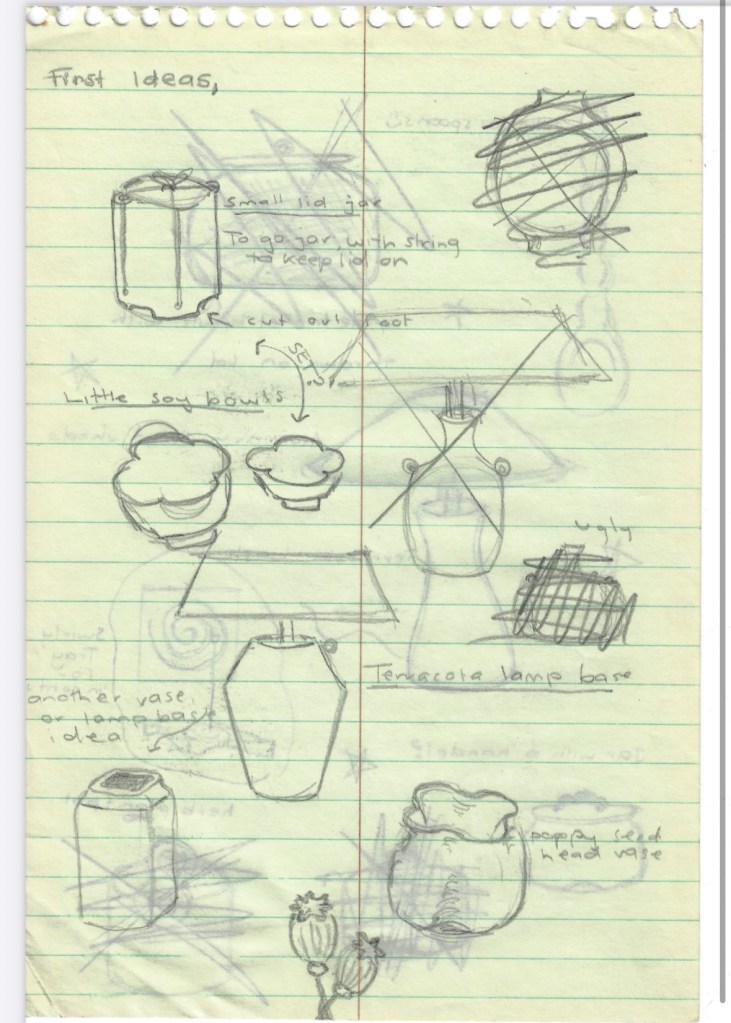 First Ideas,
small lid jar
To go jar, with string
to keep lid on
cut out foot
SET?
Little soy bowls
ugly
Terracota lamp base
another vase
or lamp base
idea
poppy seed
head vase